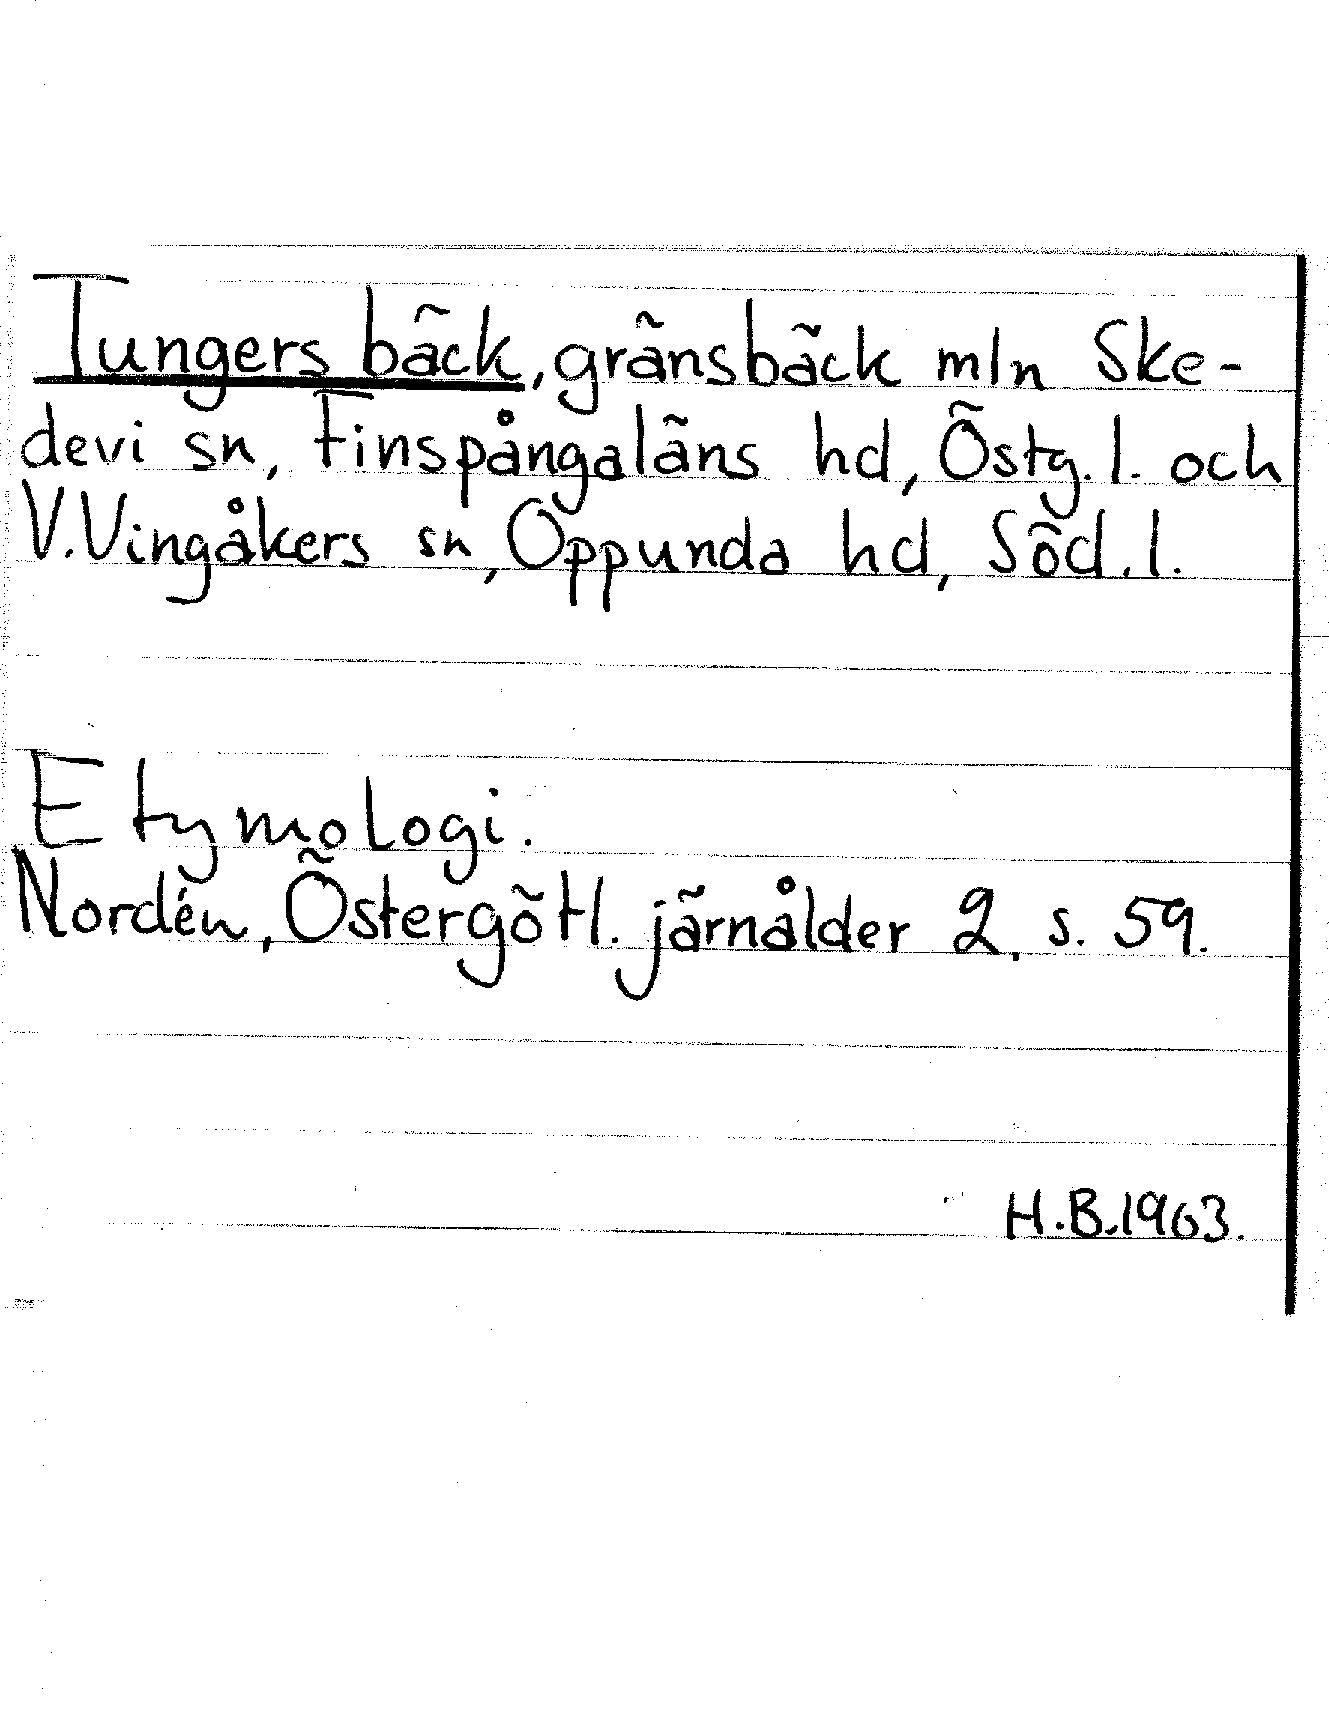 Tungers bäck, gränsbäck mln Ske-
devi sn, Finspångaläns hd, Östg. l. och
V.Vingåkers sn, Oppunda hd, Söd. l.
Etymologi.
Nordén, Östergötl. järnålder 2, s. 59.
H.B.1963.